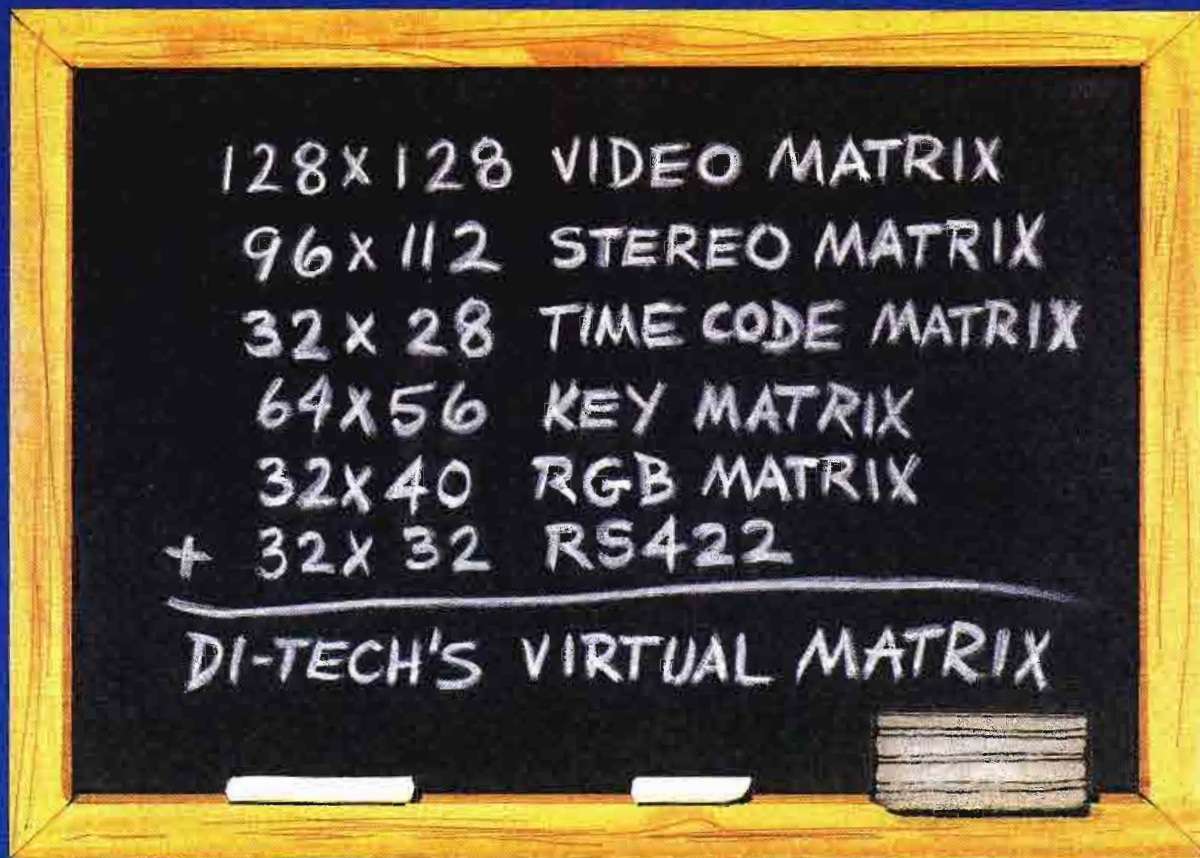 128X128 VIDEO MATRIX
96X112 STEREO MATRIX
32X 28 TIME CODE MATRIX
64X56 KEY MATRIX
32X40 RGB MATRIX
+ 32X 32 RS422
DI-TECH'S VIRTUAL MATRIX